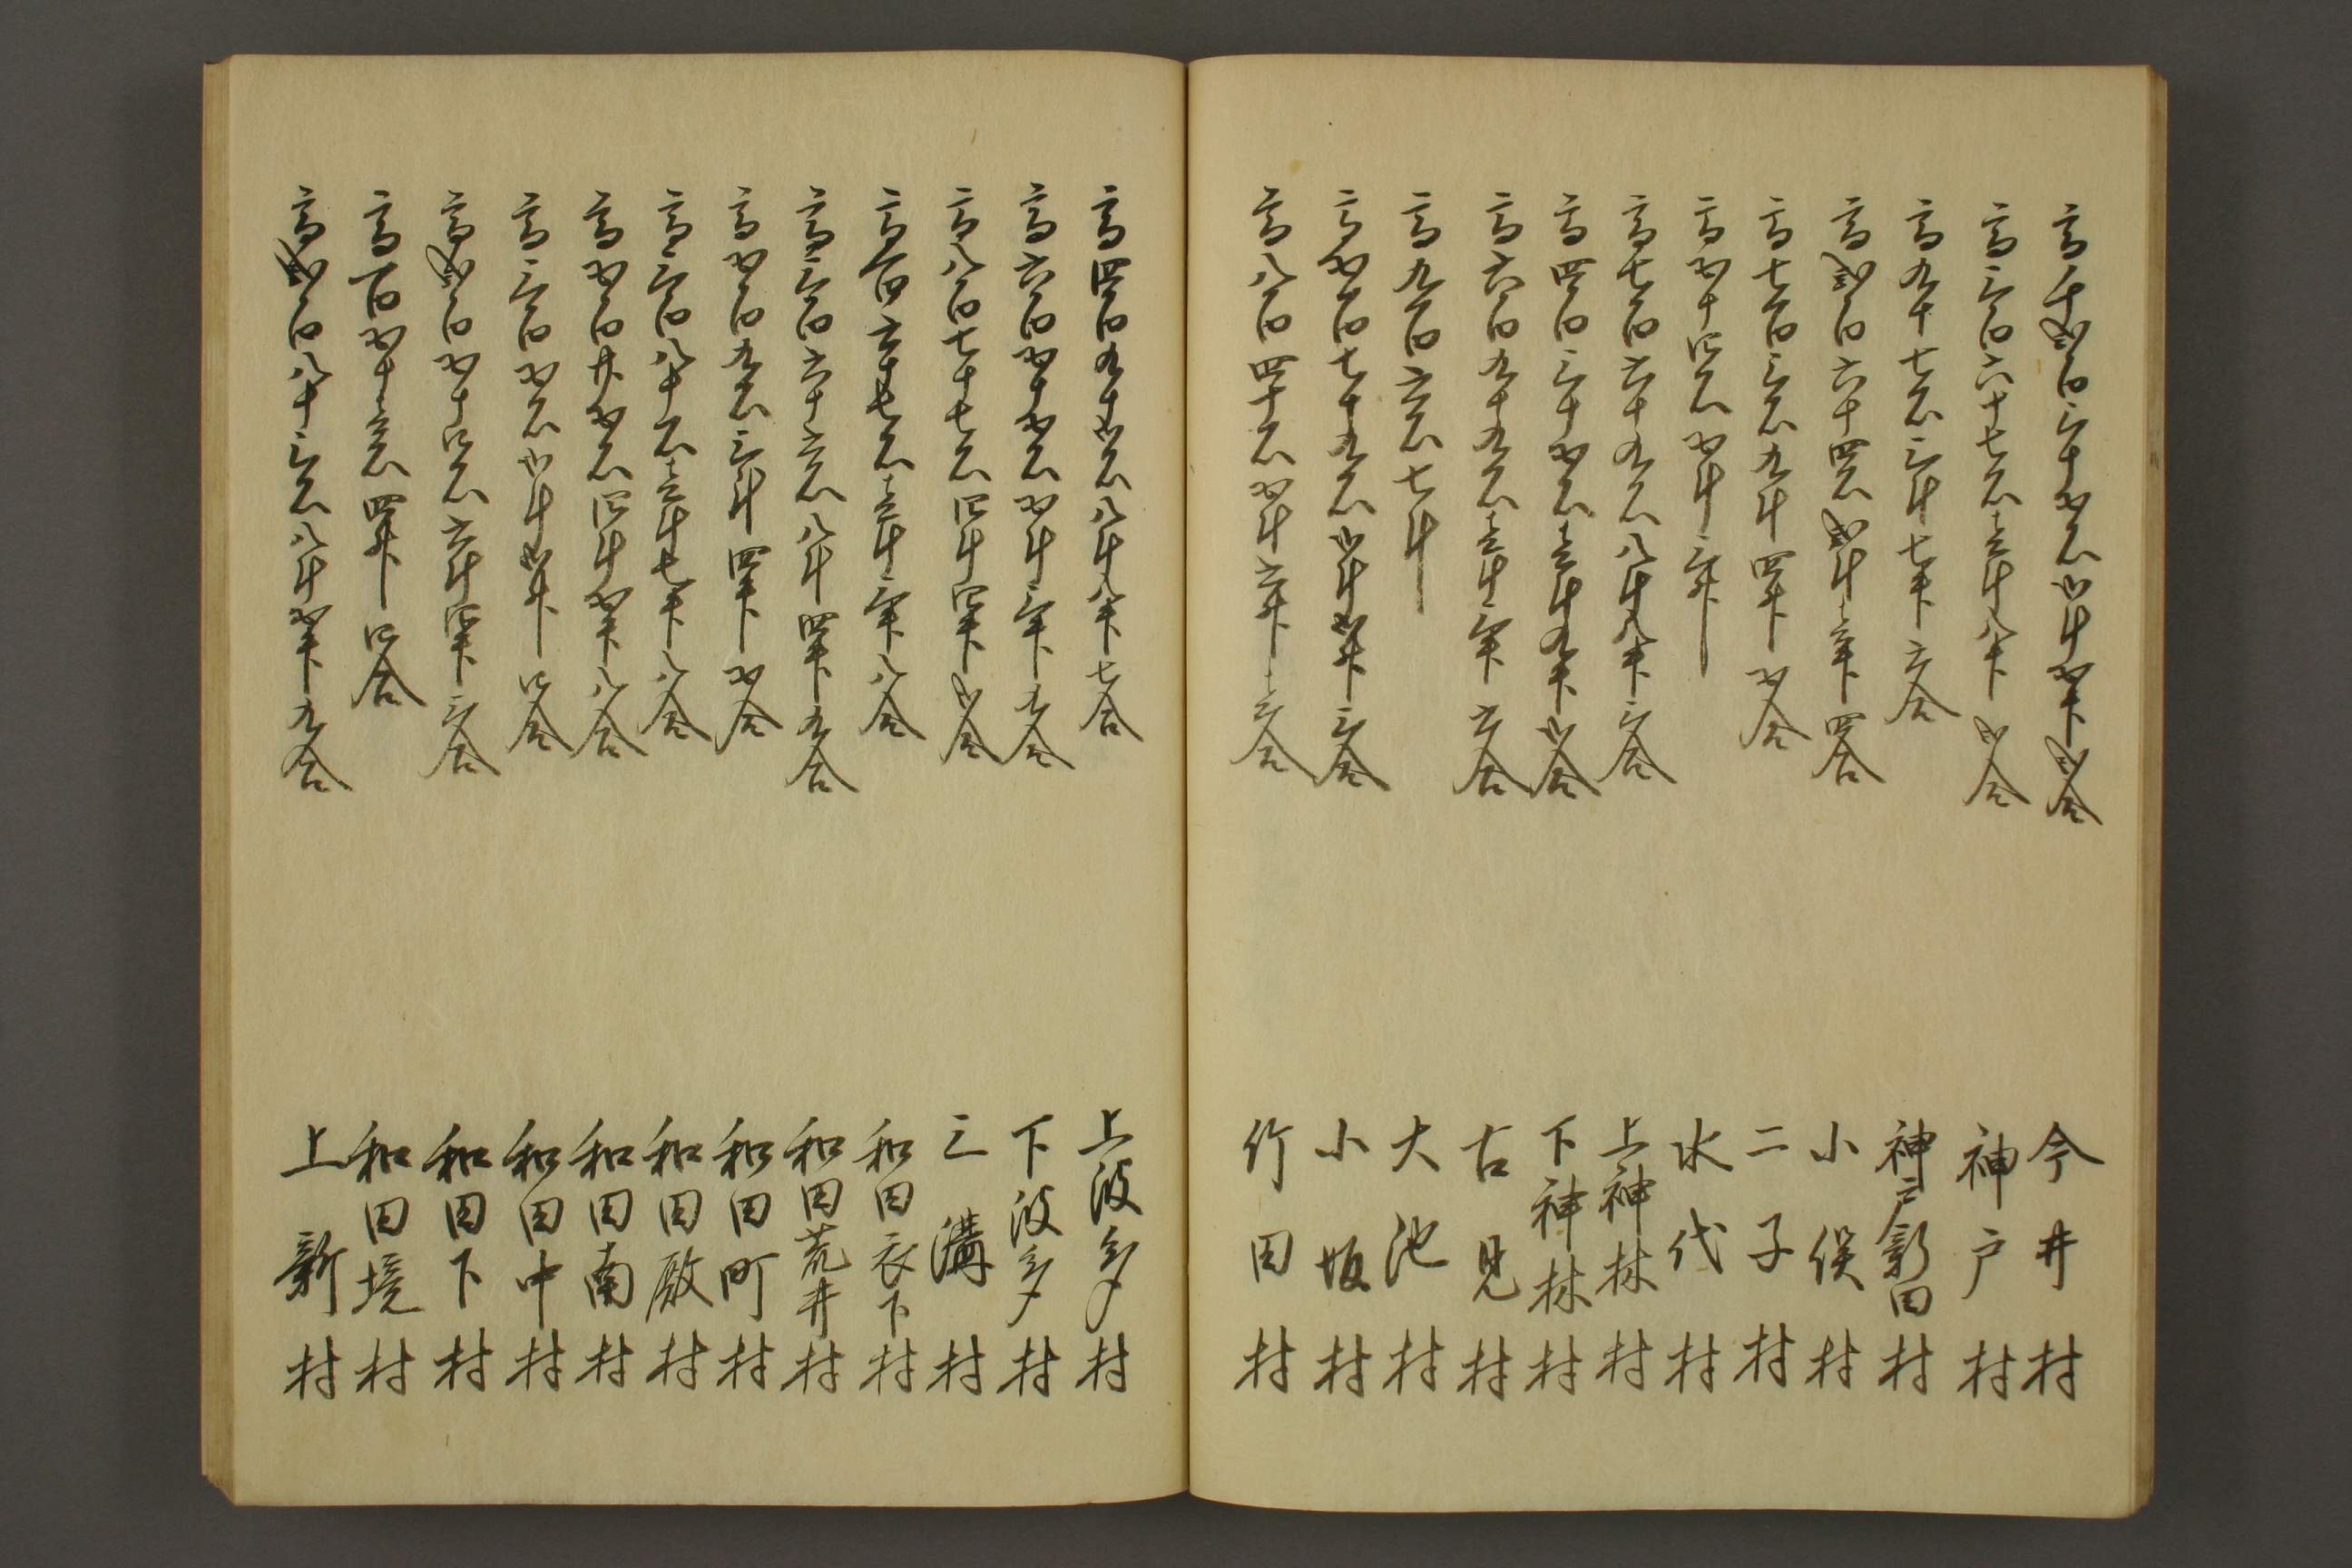 高千弐百三十五石弐斗五升弐合 今井村
高三百六十七石壱斗八升弐合 神戸村
高九十七石三斗七升六合 神戸新田村
高弐百六十四石弐斗壱升四合 小俣村
高七百三石九斗四升五合 二子村
高五十四石五斗三升 水代村
高七百六十九石八斗八升三合 上神林村
高四百三十五石壱斗九升弐合 下神林村
高六百九十九石壱斗三升六合 古見村
高九百六石七斗 大池村
高五百七十九石弐斗弐升三合 小坂村
高八百四十石五斗六升壱合 竹田村
高四百九十弐石八斗八升七合 上波多村
高六百五十五石五斗三升七合 下波多村
高八百七十七石四斗四升弐合 三溝村
高百六十七石壱斗三升八合 和田衣下村
高三百六十六石八斗四升九合 和田荒井村
高五百九石三斗四升五合 和田町村
高三百八十石壱斗七升八合 和田殿村
高五百廿五石四斗五升八合 和田南村
高三百五石弐斗弐升四合 和田中村
高弐百五十四石六斗四升三合 和田下村
高百五十壱石四升四合 和田境村
高弐百八十三石八斗五升九合 上新村